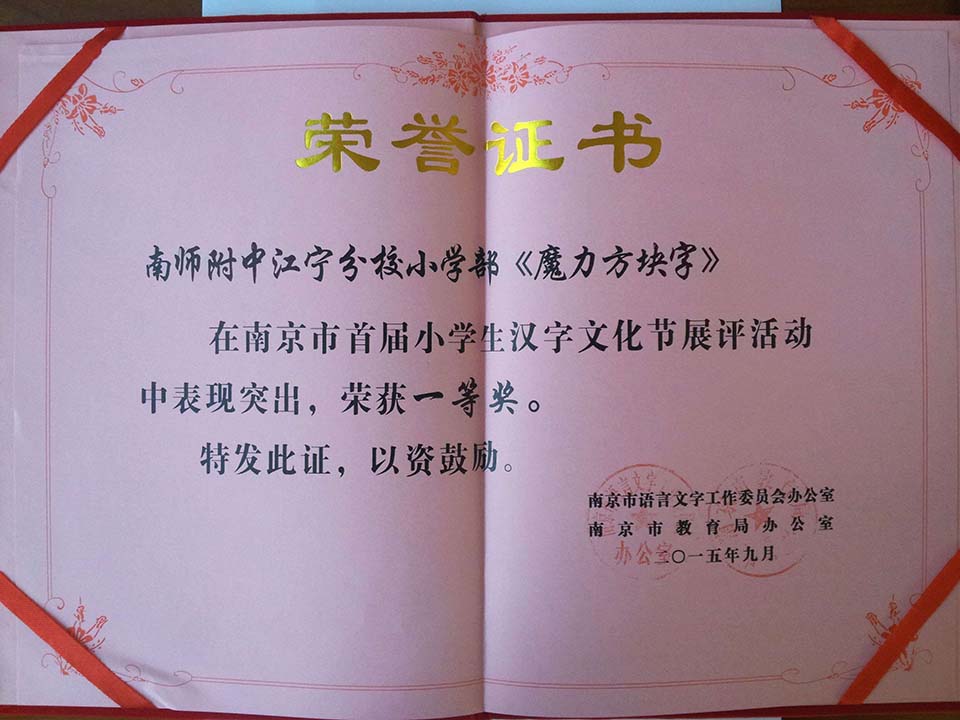 荣誉证书
南师附中江宁分校小学部《魔力方块字》
在南京市首届小学生汉字文化节展评活动
中表现突出，荣获一等奖。
特发此证，以资鼓励。
南京市语言文字工作委员会办公室
南京市教育局办公室
二〇一五年九月
办公室